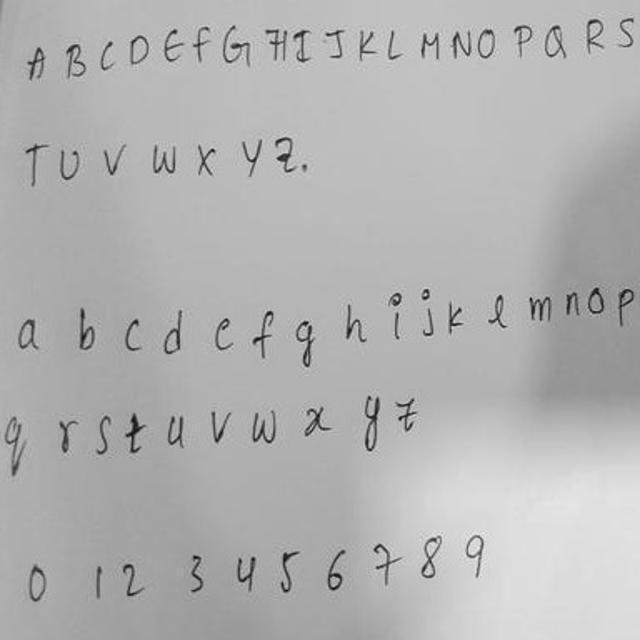 A B C D E f G H I J K L M N O P Q R S
T U V W X Y Z.
a b c d e f g h i j k l m n o p
q r s t u v w x y z
0 1 2 3 4 5 6 7 8 9